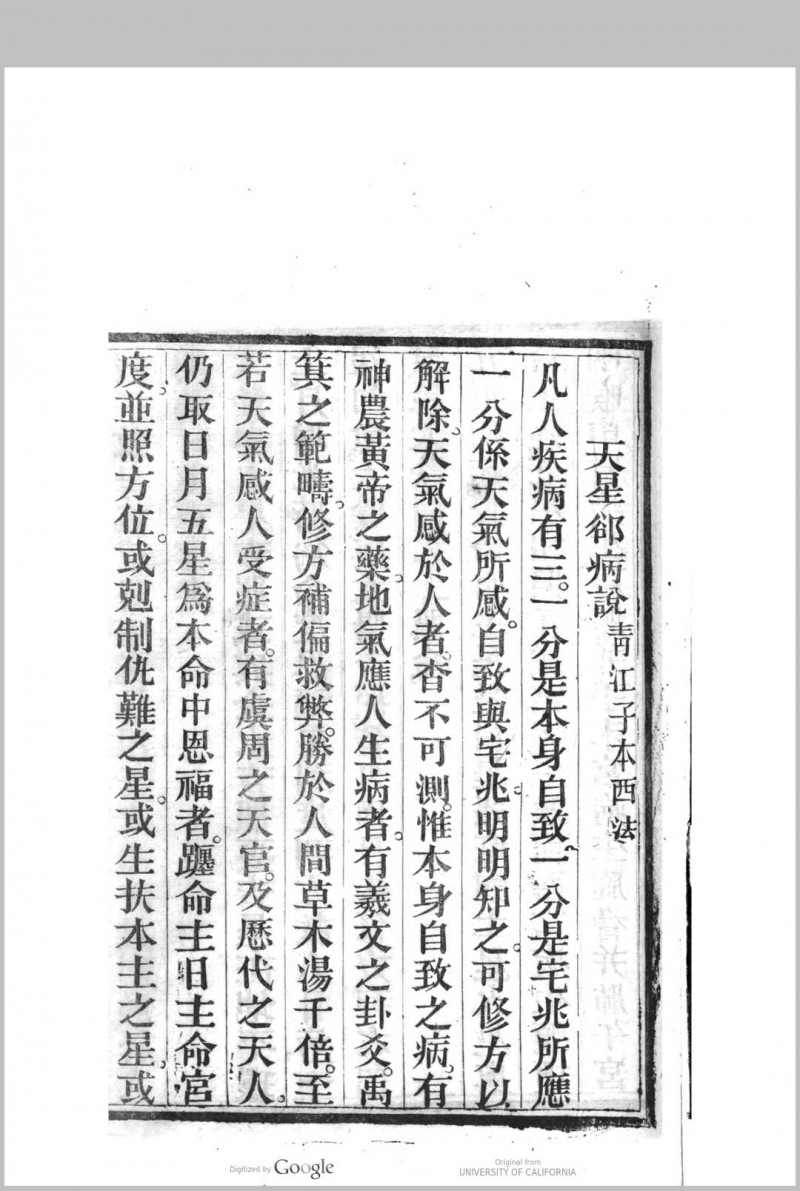 天星郤病說 青江子本西法
凡人疾病有三。一分是本身自致。一分是宅兆所應
一分係天氣所感。自致與宅兆。明明知之。可修方以
解除。天氣感於人者。杳不可測。惟本身自致之病。有
神農黃帝之藥。地氣應人生病者。有羲文之卦爻。禹
箕之範疇。修方補偏救弊。勝於人間草木湯千倍。至
若天氣感人受症者。有虞周之天官。及歷代之天人。
仍取日月五星為本命中恩福者。躔命主旧主命宮
度。並照方位。或剋制仇難之星。或生扶本主之星。或
Digitized by Google
Original from
UNIVERSITY OF CALIFORNIA